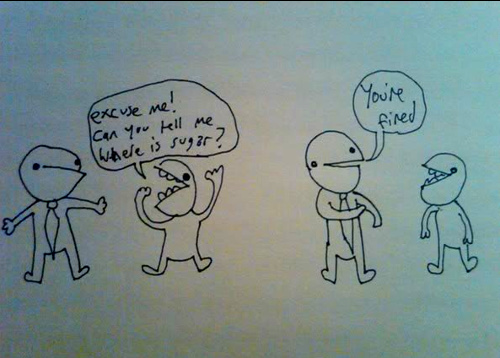 excuse me!
can you tell me
where is sugar?
You're
fired